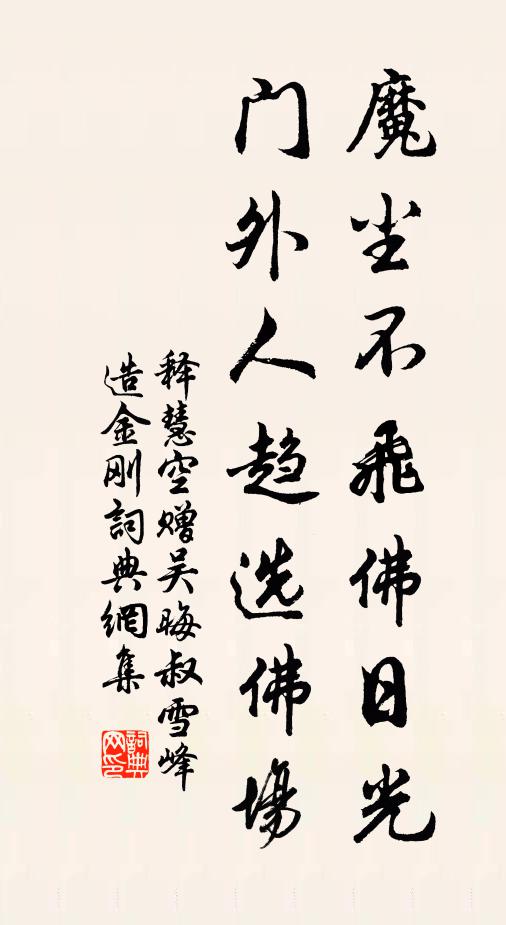 魔尘不飛佛日光
门外人趋选佛場
释慧空赠吴晦叔雪峰
造金刚詞典網集
詞典网印